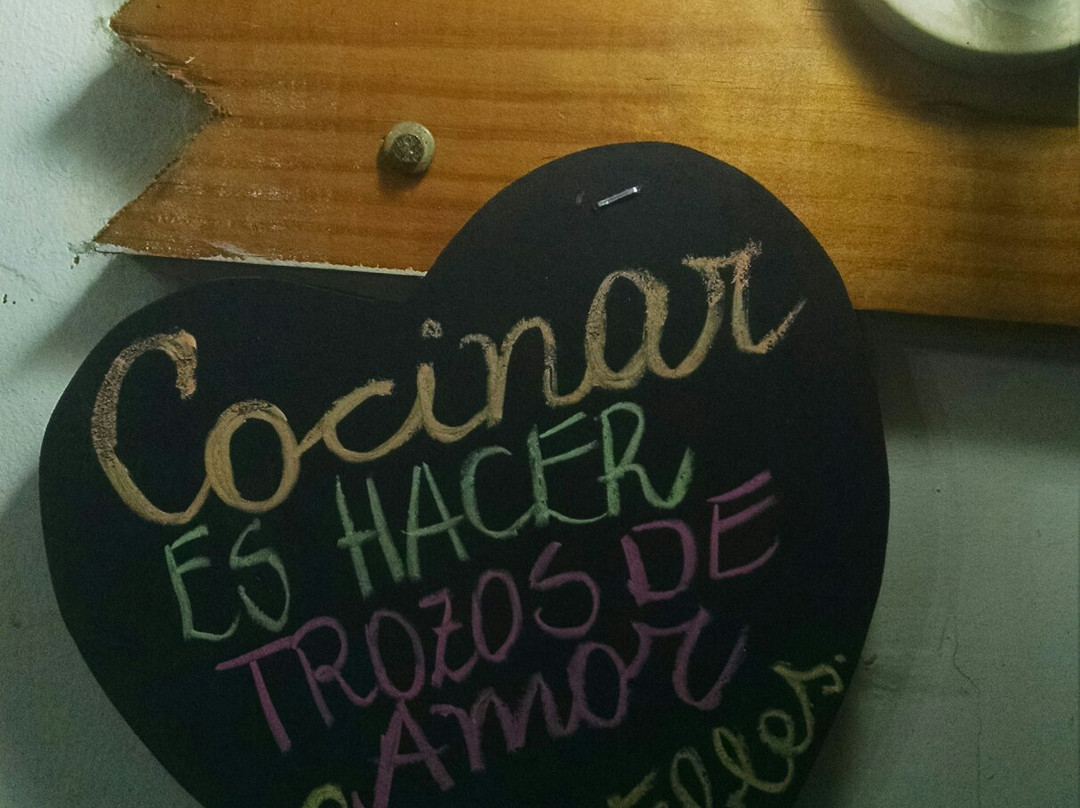 Cocinar
ES HACER
TROZOS DE
Amor